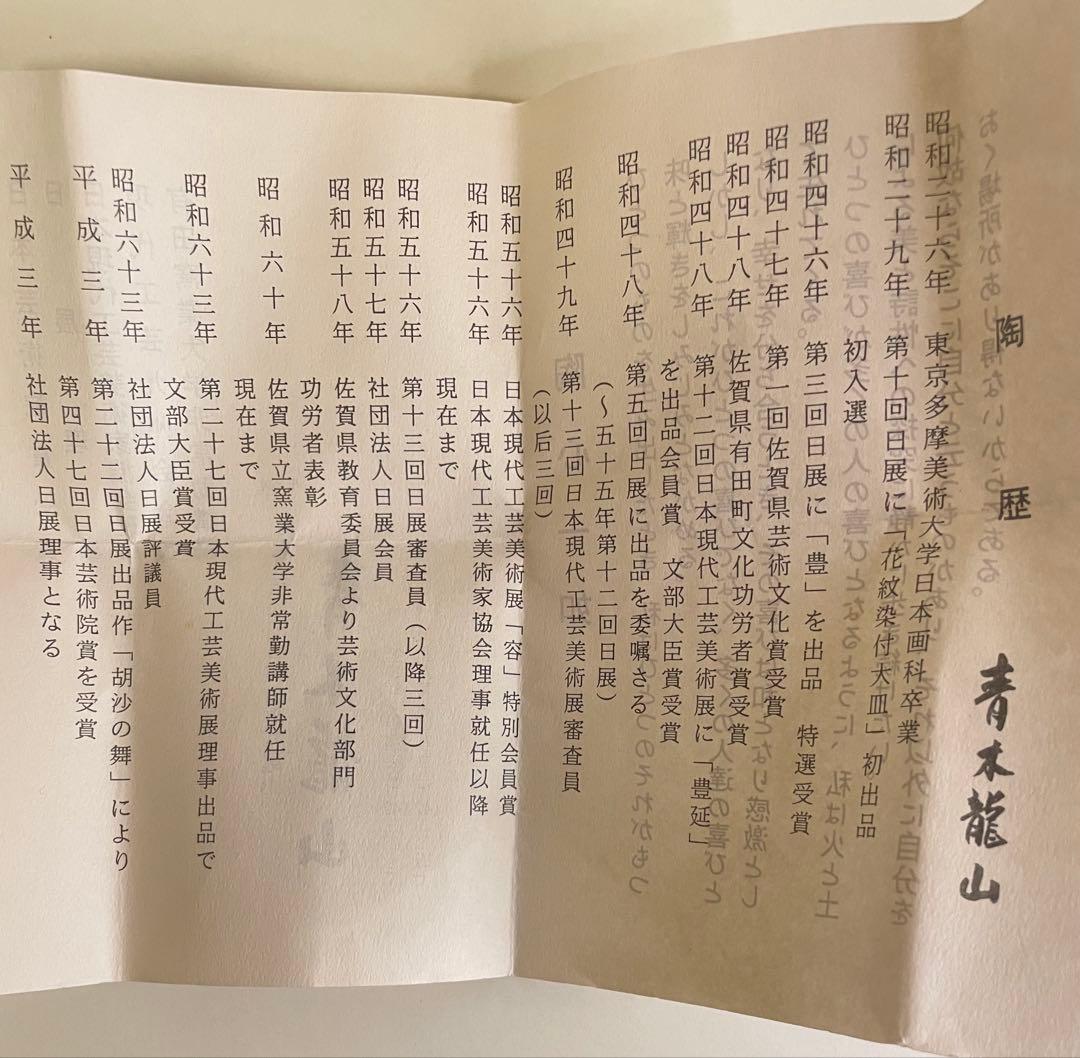 陶歴
青木龍山
昭和二十六年 東京多摩美術大学日本画科卒業
昭和二十九年 第十回日展に「花紋染付大皿」初出品
初入選
昭和四十六年 第三回日展に「豊」を出品 特選受賞
昭和四十七年 第一回佐賀県芸術文化賞受賞
昭和四十八年 佐賀県有田町文化功労者賞受賞
昭和四十八年 第十二回日本現代工芸美術展に「豊延」
を出品会員賞 文部大臣賞受賞
昭和四十八年 第五回日展に出品を委嘱さる
(〜五十五年第十二回日展)
昭和四十九年 第十三回日本現代工芸美術展審査員
(以后三回)
昭和五十六年 日本現代工芸美術展「容」特別会員賞
昭和五十六年 日本現代工芸美術家協会理事就任以降
現在まで
昭和五十六年 第十三回日展審査員(以降三回)
昭和五十七年 社団法人日展会員
昭和五十八年 佐賀県教育委員会より芸術文化部門
功労者表彰
昭和六十年 佐賀県立窯業大学非常勤講師就任
現在まで
昭和六十三年 第二十七回日本現代工芸美術展理事出品で
文部大臣賞受賞
昭和六十三年 社団法人日展評議員
平成三年 第二十二回日展出品作「胡沙の舞」により
第四十七回日本芸術院賞を受賞
平成三年 社団法人日展理事となる